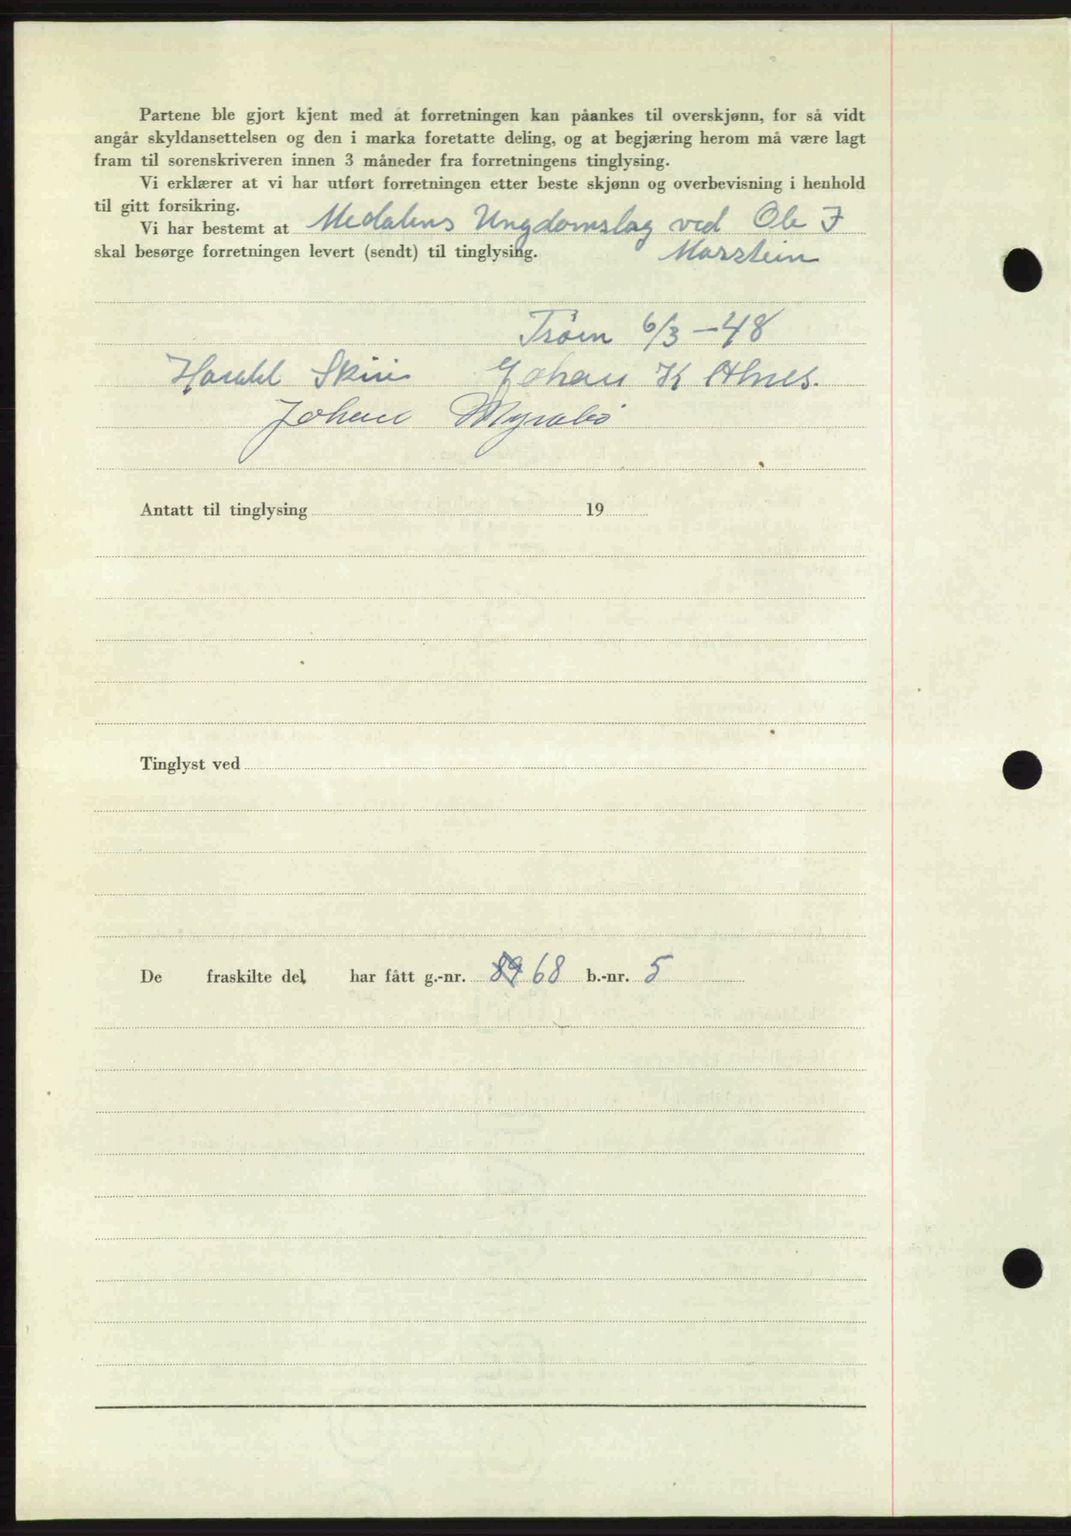 Partene ble gjort kjent med at forretningen kan påankes til overskjønn, for så vidt
angår skyldansettelsen og den i marka foretatte deling, og at begjæring herom må være lagt
fram til sorenskriveren innen 3 måneder fra forretningens tinglysing.
Vi erklærer at vi har utført forretningen etter beste skjønn og overbevisning i henhold
til gitt forsikring.
Vi har bestemt at Medalens Ungdomslag ved Ole J
skal besørge forretningen levert (sendt) til tinglysing. Marstein
6/3-48
Harald Skiri Johan K Alnes.
Johan Myrabø
Antatt til tinglysing 19
Tinglyst ved
De fraskilte del har fått g.-nr. 89 68 b.-nr. 5